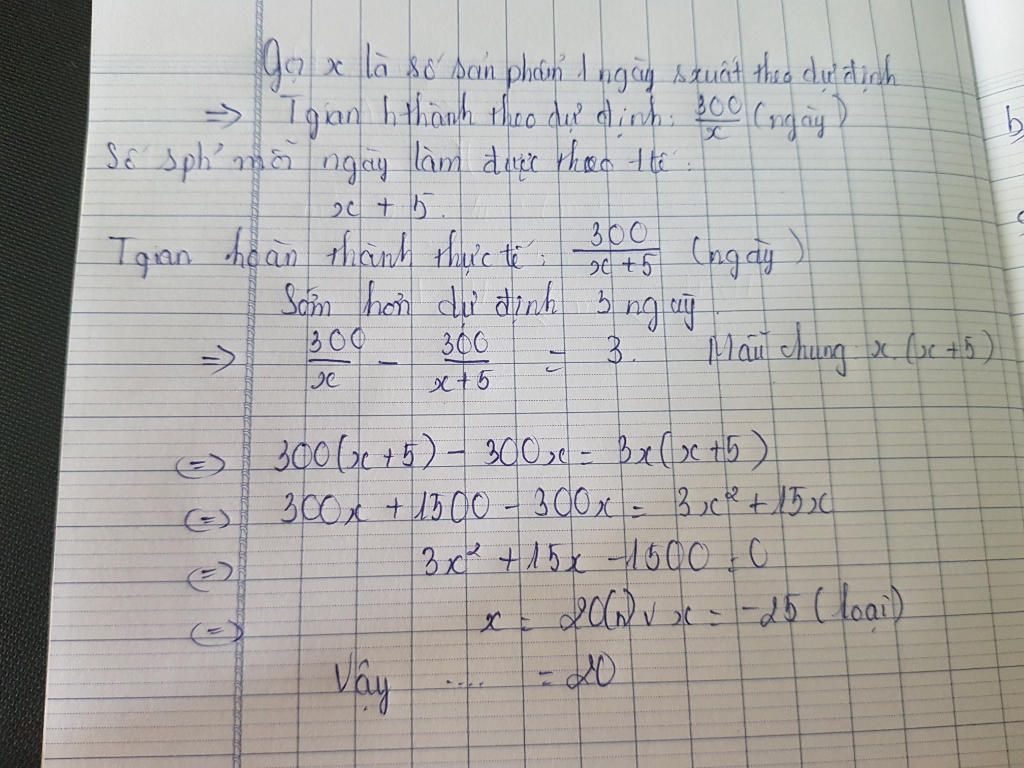 Gọi x là số sản phẩm 1 ngày sxuất theo dự định
=> Tgian hthành theo dự định: 300/x (ngày)
Số sph mỗi ngày làm được theo ttế:
x + 5.
Tgian hoàn thành thực tế: 300/(x+5) (ngày)
Sớm hơn dự định 3 ngày.
=> 300/x - 300/(x+5) = 3. Mẫu chung x.(x+5)
(=) 300(x+5) - 300x = 3x(x+5)
(=) 300x + 1500 - 300x = 3x² + 15x
(=) 3x² + 15x - 1500 = 0
(=) x = 20(n) v x = -25 (loại)
Vậy .... = 20
b,